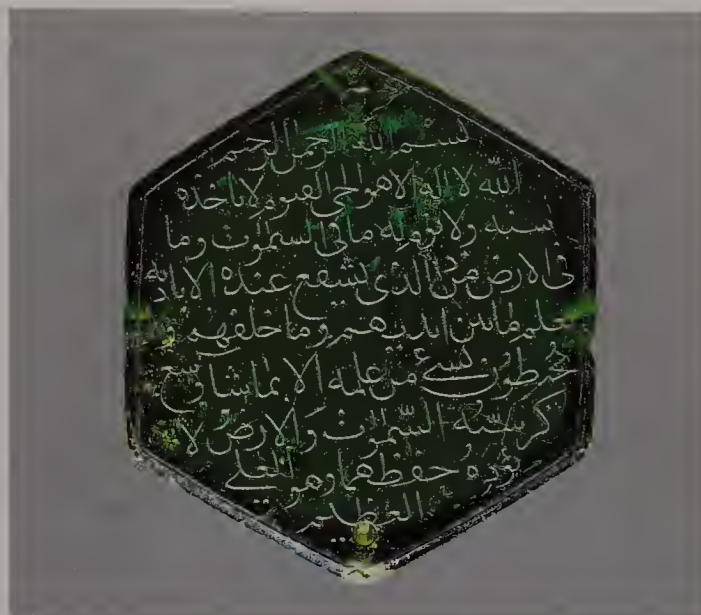 بسم الله الرحمن الرحيم
الله لا اله الا هو الحي القيوم لا تاخذه
سنه ولا نوم له ما في السموت وما
في الارض من ذا الذي يشفع عنده الا باذنه
يعلم ما بين ايديهم وما خلفهم و
يحيطون بشيء من علمه الا بما شا وسع
كرسيه السموت والارض ولا
يؤده حفظهما وهو العلي
العظيم